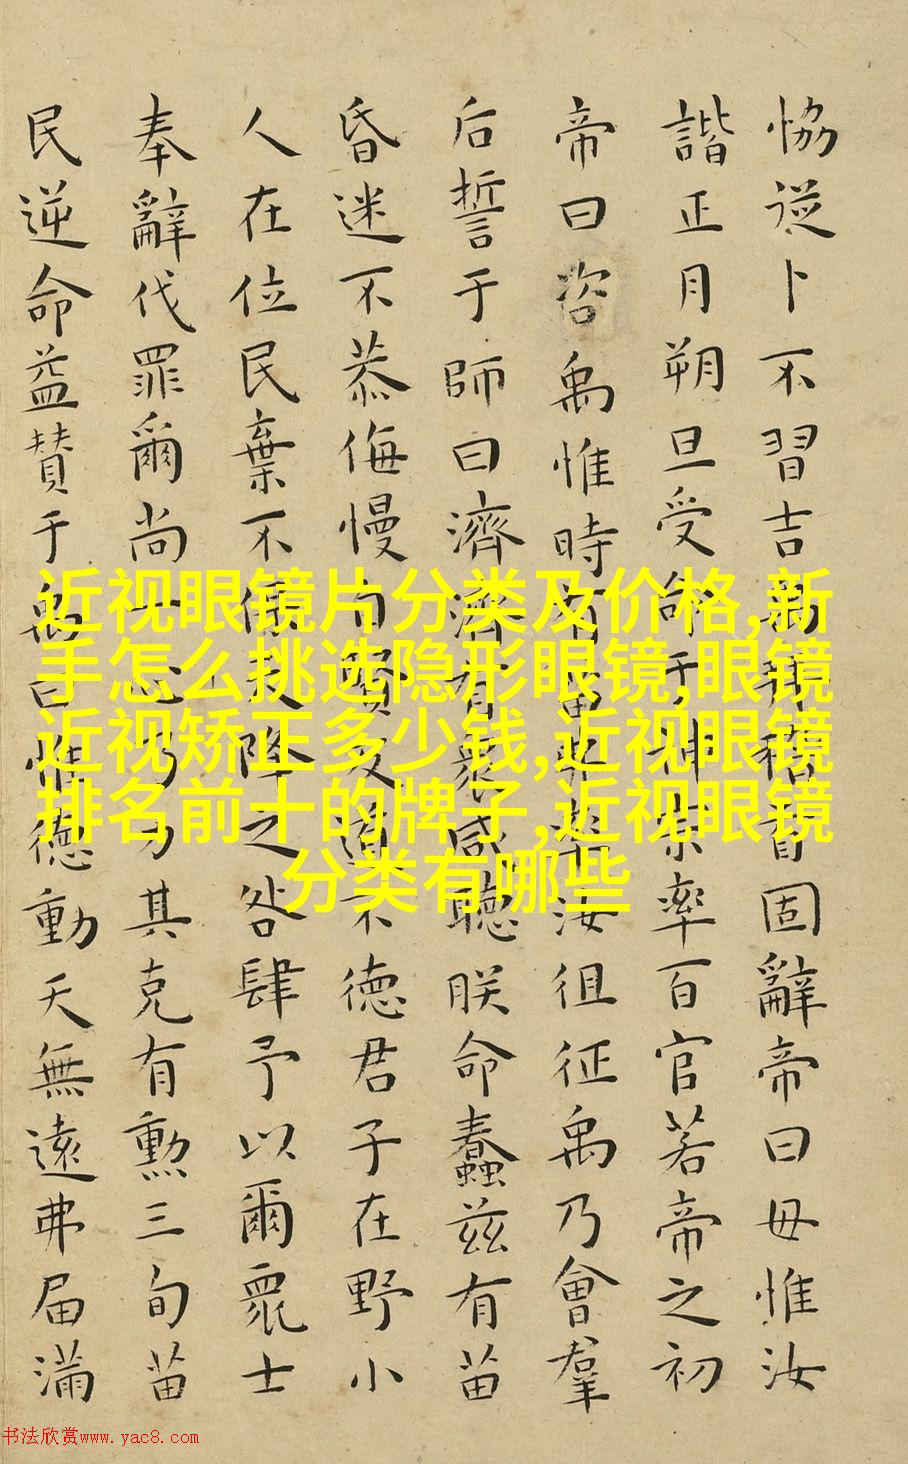 恊從卜不習吉禹拜稽首固辭帝曰毋惟汝
諧正月朔旦受命于神宗率百官若帝之初
帝曰咨禹惟時有苗弗率汝徂征禹乃會羣
后誓于師曰濟濟有衆咸聽朕命蠢茲有苗
昏迷不恭侮慢自賢反道不徳君子在野小
人在位民棄不保天降之咎肆予以爾眾士
奉辭伐罪爾尚一心乃力其克有勲三旬苗
民逆命益賛于禹曰惟徳動天無遠弗届滿
近视眼镜片分类及价格,新
手怎么挑选隐形眼镜,眼镜
近视矫正多少钱,近视眼镜
排名前十的牌子,近视眼镜
分类有哪些
书法欣赏www.yac8.com